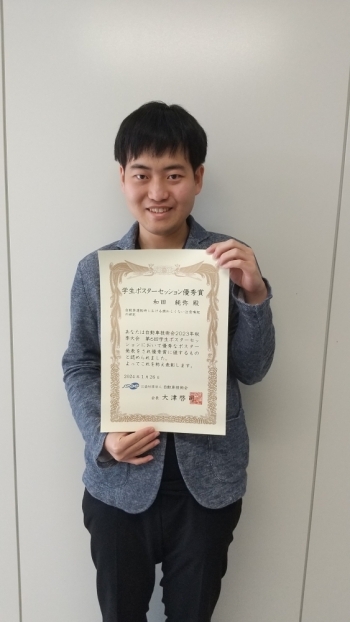 学生ポスターセッション優秀賞
和田 純弥 殿
あなたは自動車技術会2023年秋
季大会 第6回学生ポスターセッ
ションにおいて優秀なポスター
発表をされ優秀賞に値するもの
と認められました。
よってこれを称え表彰します。
2024年1月26日
公益社団法人 自動車技術会
会長 大津啓司